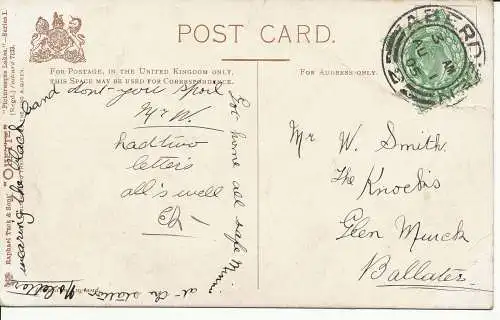 POST CARD.
FOR POSTAGE, IN THE UNITED KINGDOM ONLY,
THIS SPACE MAY BE USED FOR CORRESPONDENCE.
FOR ADDRESS-ONLY.
"Picturesque Lakes."—Series I.
"OILETTE"
Raphael Tuck & Sons'
ABERD
AU 3
05
Got home all safe
at the station
wearing the black band don't you spoil
Mr W.
had two
letters
all's well
Mr W. Smith.
The Knocks
Glen Muick
Ballater.